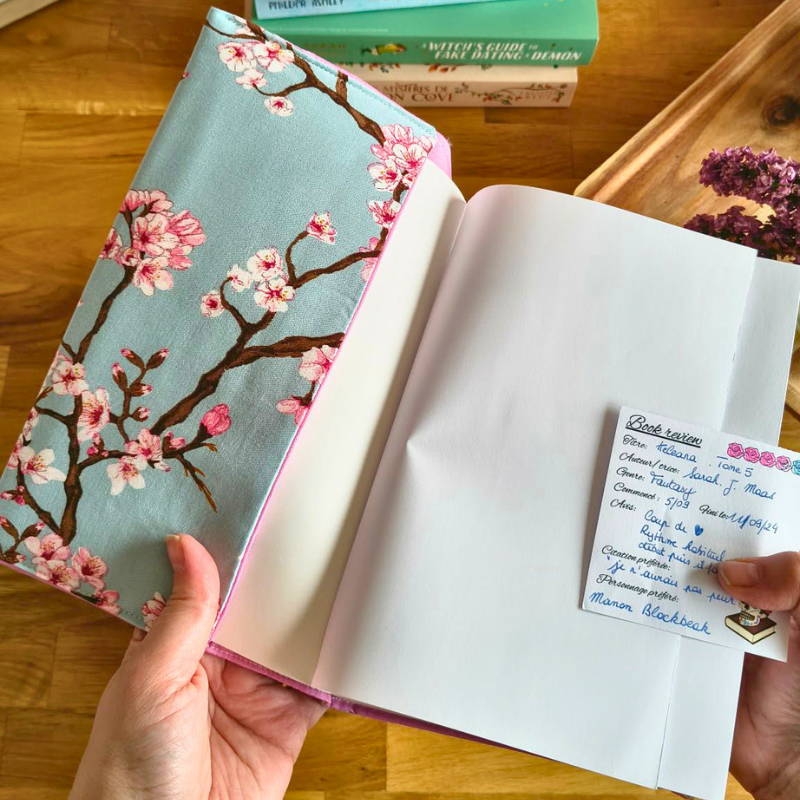 PHILLIPA ASHLEY
A WITCH'S GUIDE TO
FAKE DATING A DEMON
Book review
Titre: Keleana. Tome 5
Auteur/crice: Sarah. J. Maas
Genre: Fantasy
Commencé: 5/09 Fini le: 11/09/24
Avis: Coup de
Rythme habituel
début puis
Citation préférée:
"je n'aurai pas peur
Personnage préféré:
Manon Blackbeak